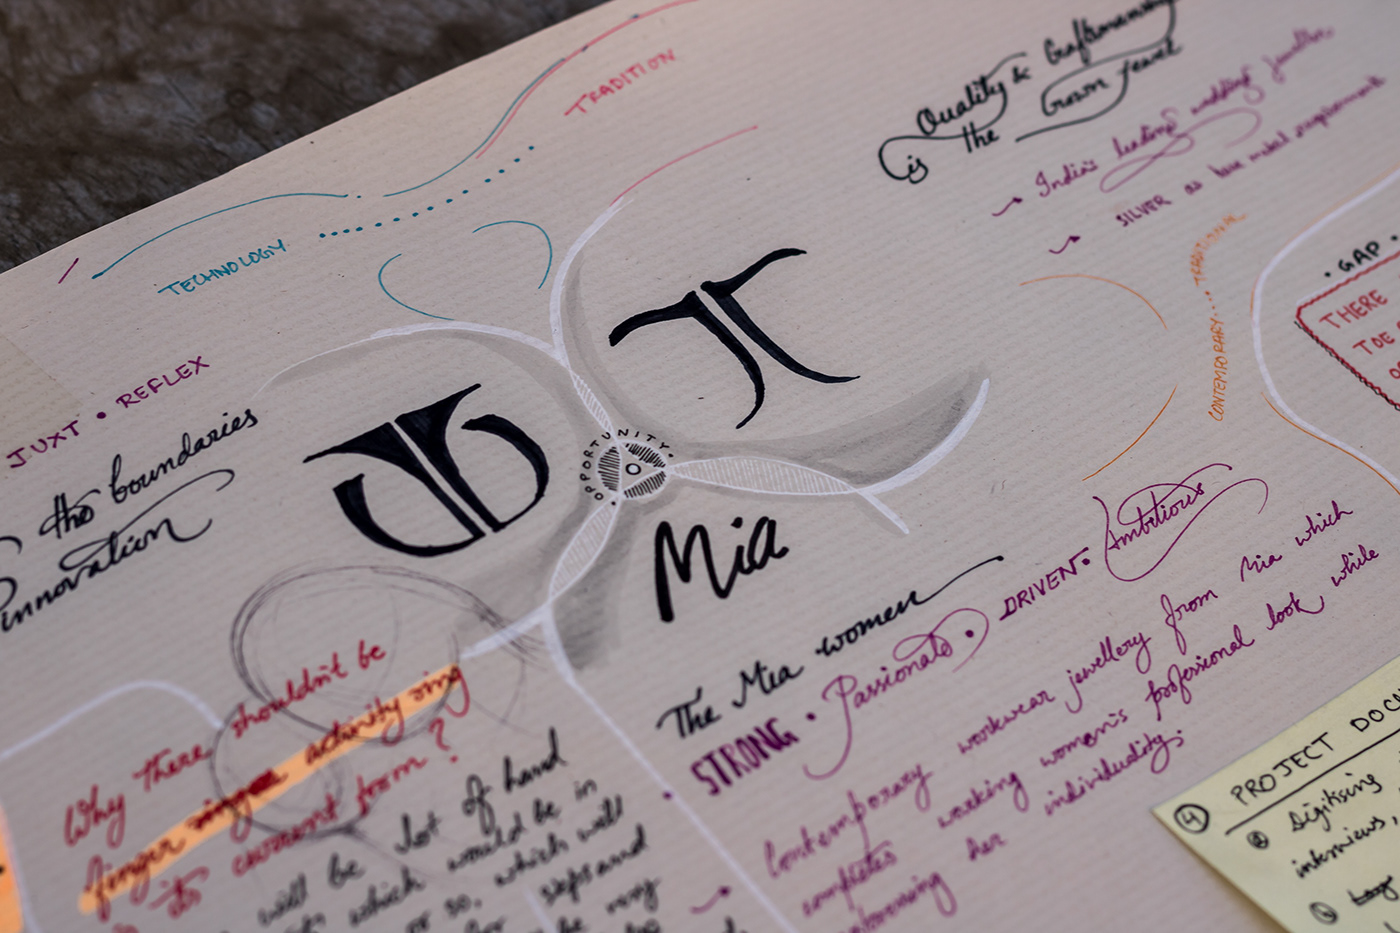 TRADITION
TECHNOLOGY
Quality & Craftsmanship
is the Crown Jewel
→ India's leading wedding jeweller
→ SILVER as base metal requirement
CONTEMPORARY.... TRADITIONAL
• GAP •
THERE
TOE
JUXT • REFLEX
the boundaries
innovation
OPPORTUNITY
Mia
The Mia women
STRONG • Passionate • DRIVEN • Ambitious
Contemporary workwear jewellery from Mia which
completes working women's professional look, while
her individuality.
Why there shouldn't be
finger activity ring
its current form?
will be lot of hand
which would be in
or so, which will
steps and
be very
④ PROJECT DOC
Digitising
interviews,